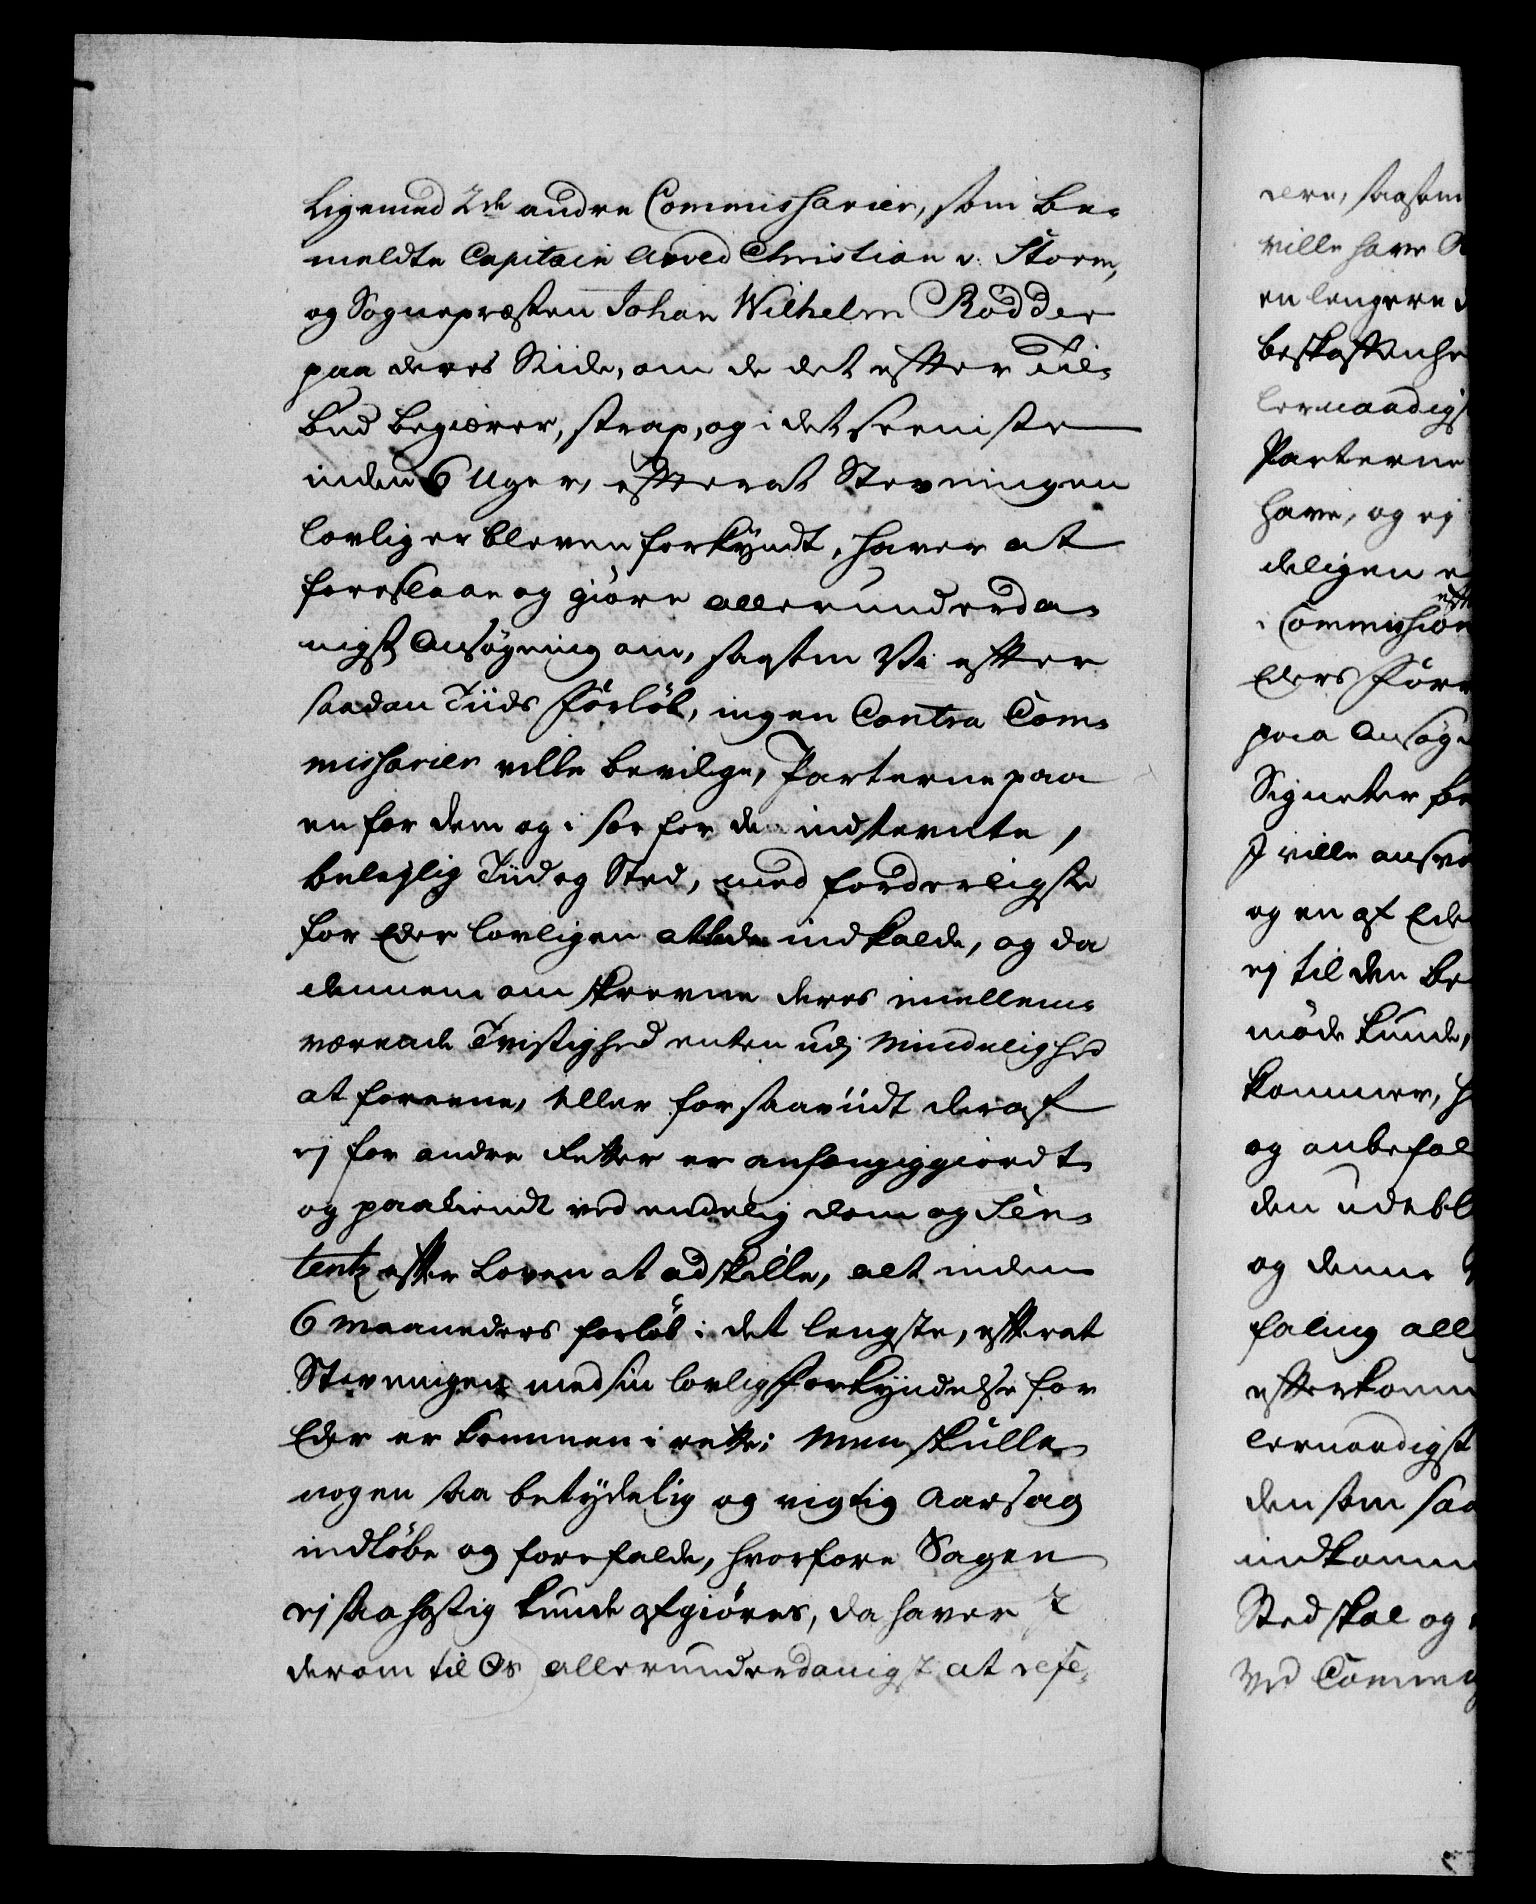 ligemed 2de andre Commissarier, som be-
meldte Capitain Arved Christian v. Storm,
og Sognepræsten Johan Wilhelm Rødder
paa deres Siide, om de det efter Til-
bud begiærer, strax, og i det seeniste
inden 6 Uger, efterat Stevningen
lovlig er bleven forkyndt, haver at
foreslaae og giøre allerunderda-
nigst Ansøgning om, saasom Vi efter
saadan Tiids Forløb, ingen Contra Com-
missarier ville bevilge, Parterne paa
en for dem og i sær for de indstevnte,
belejlig Tiid og Sted, med forderligste
for Eder lovligen at lade indkalde, og da
dennem om skrevne deres imellem-
værende Tvistighed enten udj Mindelighed
at foreene, eller forsaaviidt deraf
ej for andre Retter er anhængiggiordt
og paakiendt ved endelig Dom og Sen-
tentz efter Loven at adskille, alt inden
6 Maaneders Forløb i det lengste, efterat
Stevningen med sin lovlig Forkyndelse for
Eder er kommen i rette; Men skulle
nogen saa betydelig og vigtig Aarsag
indløbe og forefalde, hvorfore Sagen
ej saa hastig kunde afgiøres, da haver I
derom til Os allerunderdanigst at refe-
dere, saasom
ville have
en lengere
beskaffenhe
lernaadigst
Parterne
have, og ej
deligen
efte
i Commission
Eders Forr
paa Ansøg-
Signeter for
I ville ansva
og en af Ede
ej til den be
møde kunde,
kommer,
og anbefal
den udebl
og denne
faling all
efterkomm
lernaadigst
den som saa
indkomm
Sted skal og
Ved Commis